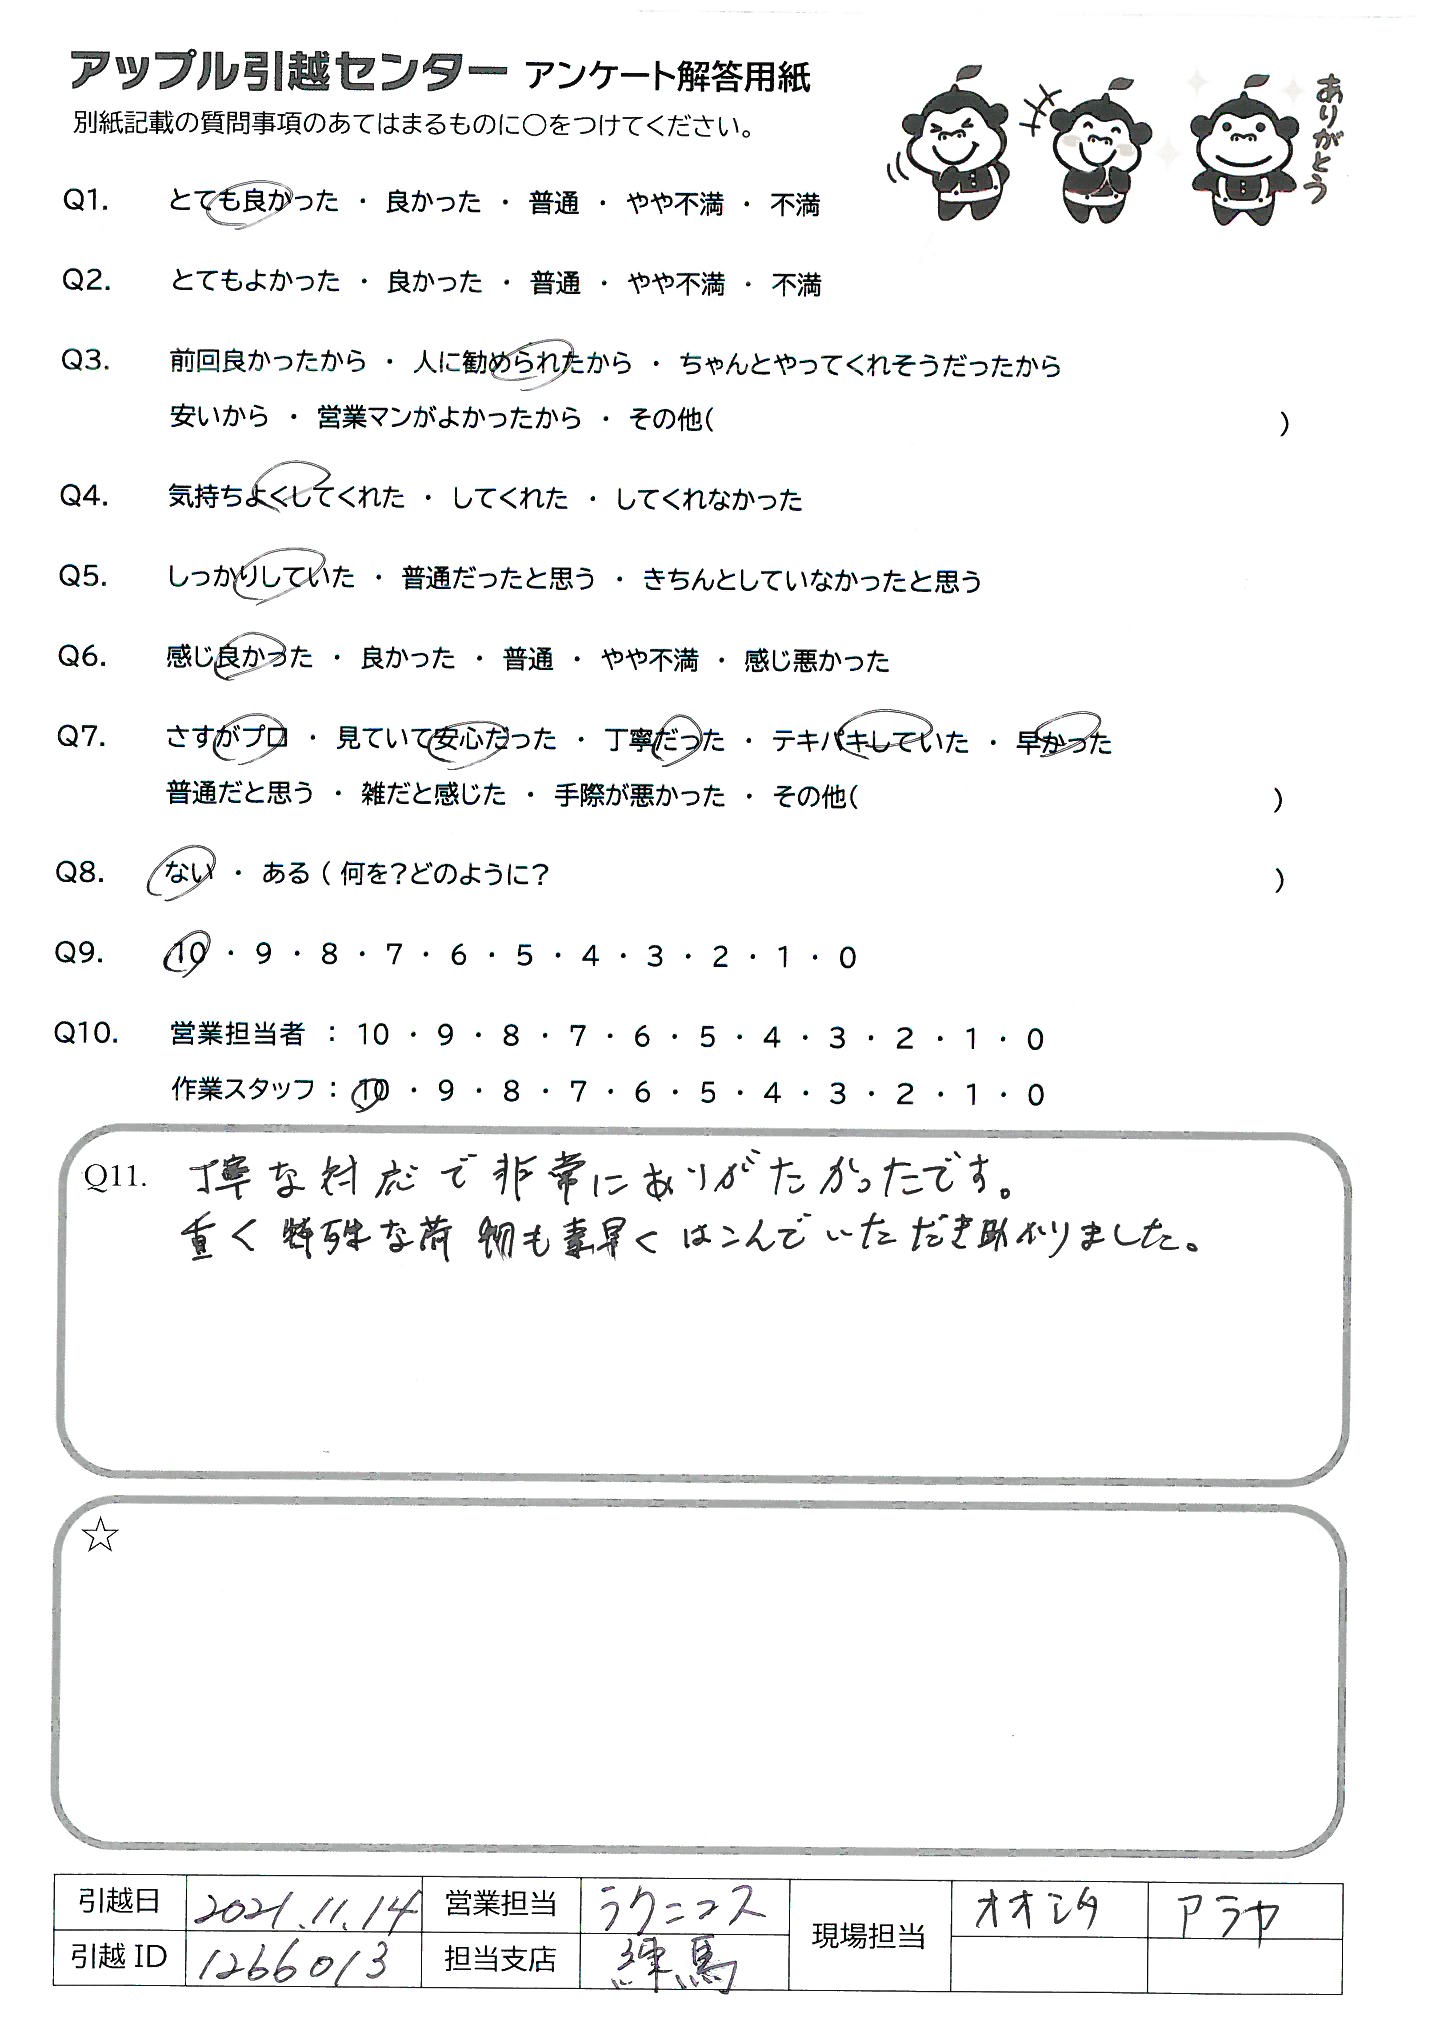 アップル引越センター アンケート解答用紙
ありがとう
別紙記載の質問事項のあてはまるものに○をつけてください。
Q1. とても良かった ・ 良かった ・ 普通 ・ やや不満 ・ 不満
Q2. とてもよかった ・ 良かった ・ 普通 ・ やや不満 ・ 不満
Q3. 前回良かったから ・ 人に勧められたから ・ ちゃんとやってくれそうだったから
安いから ・ 営業マンがよかったから ・ その他( )
Q4. 気持ちよくしてくれた ・ してくれた ・ してくれなかった
Q5. しっかりしていた ・ 普通だったと思う ・ きちんとしていなかったと思う
Q6. 感じ良かった ・ 良かった ・ 普通 ・ やや不満 ・ 感じ悪かった
Q7. さすがプロ ・ 見ていて安心だった ・ 丁寧だった ・ テキパキしていた ・ 早かった
普通だと思う ・ 雑だと感じた ・ 手際が悪かった ・ その他( )
Q8. ない ・ ある ( 何を?どのように? )
Q9. 10 ・ 9 ・ 8 ・ 7 ・ 6 ・ 5 ・ 4 ・ 3 ・ 2 ・ 1 ・ 0
Q10. 営業担当者 : 10 ・ 9 ・ 8 ・ 7 ・ 6 ・ 5 ・ 4 ・ 3 ・ 2 ・ 1 ・ 0
作業スタッフ : 10 ・ 9 ・ 8 ・ 7 ・ 6 ・ 5 ・ 4 ・ 3 ・ 2 ・ 1 ・ 0
Q11. 丁寧な対応で非常にありがたかったです。
重く特殊な荷物も素早くはこんでいただき助かりました。
☆
引越日 2021.11.14 営業担当 ラクニコス 現場担当 オオシタ アラヤ
引越 ID 1266013 担当支店 練馬